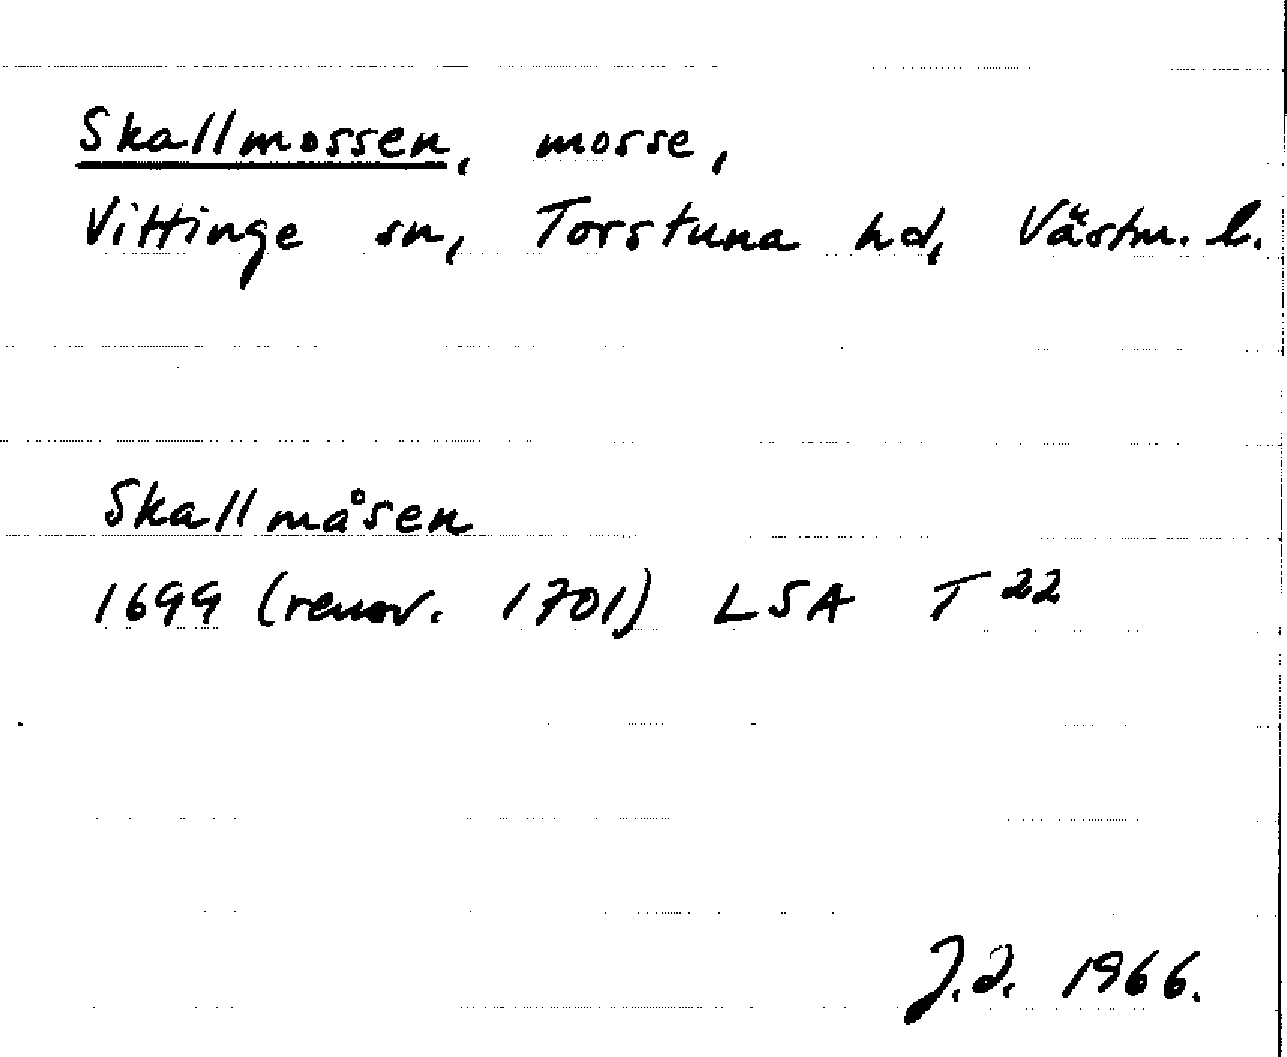 Skallmossen, mosse,
Vittinge sn, Torstuna hd, Västm. l.
Skallmåsen
1699 (renov. 1701) LSA T 22
J.J. 1966.